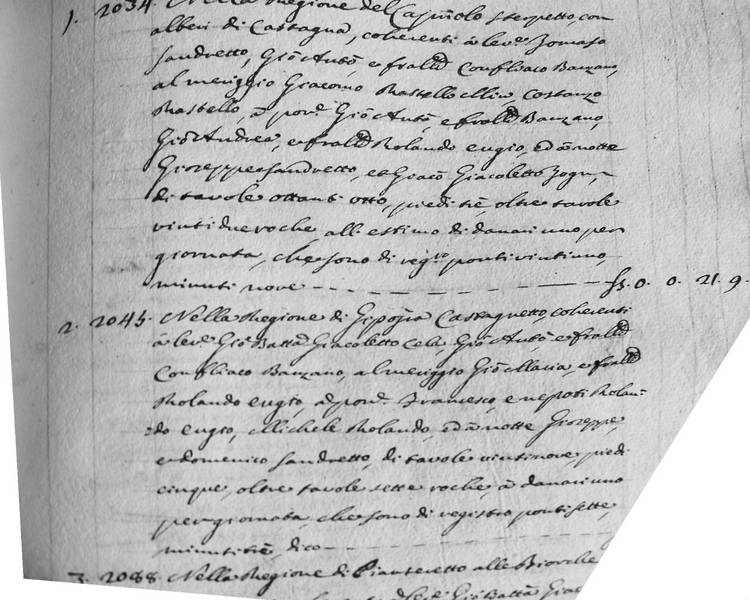 1. 2034. Nella Regione del Capiolo sterpetto con
alberi di Castagna, coherenti à leve. Tomaso
Sandretto, Gio Anto, e fralld Conflisaco Banzano,
al meriggio Giacomo Mastello Costanzo
Mastello, à pon. Gio Anto, e fralld Banzano,
Gio Andrea, e fralld Rolando eugio, ed à notte
Gioseppe Sandretto, e Giaco Giacoletto
di tavole ottant' otto, piedi trè, oltre tavole
vinti due roche, all' estimo di danari uno per
giornata, che sono di regro ponti vintiuno,
minuti nove - - - - - - - £ 0. 0. 21. 9.
2. 2045. Nella Regione di Castagnetto, coherenti
à leve. Gio Batta Giacoletto Gio Anto e fralld
Conflisaco Banzano, al meriggio Gio Maria, e fralld
Rolando eugio, à pon. Francesco, e nepoti Rolan-
do eugio, Michele Rolando, ed à notte Gioseppe,
e domenico Sandretto, di tavole vintinove, piedi
cinque, oltre tavole sette roche, à danari uno
per giornata, che sono di registro ponti sette,
minuti trè, dico - - -
3. 2088. Nella Regione di Pianteretto alle
Gio Batta Giac